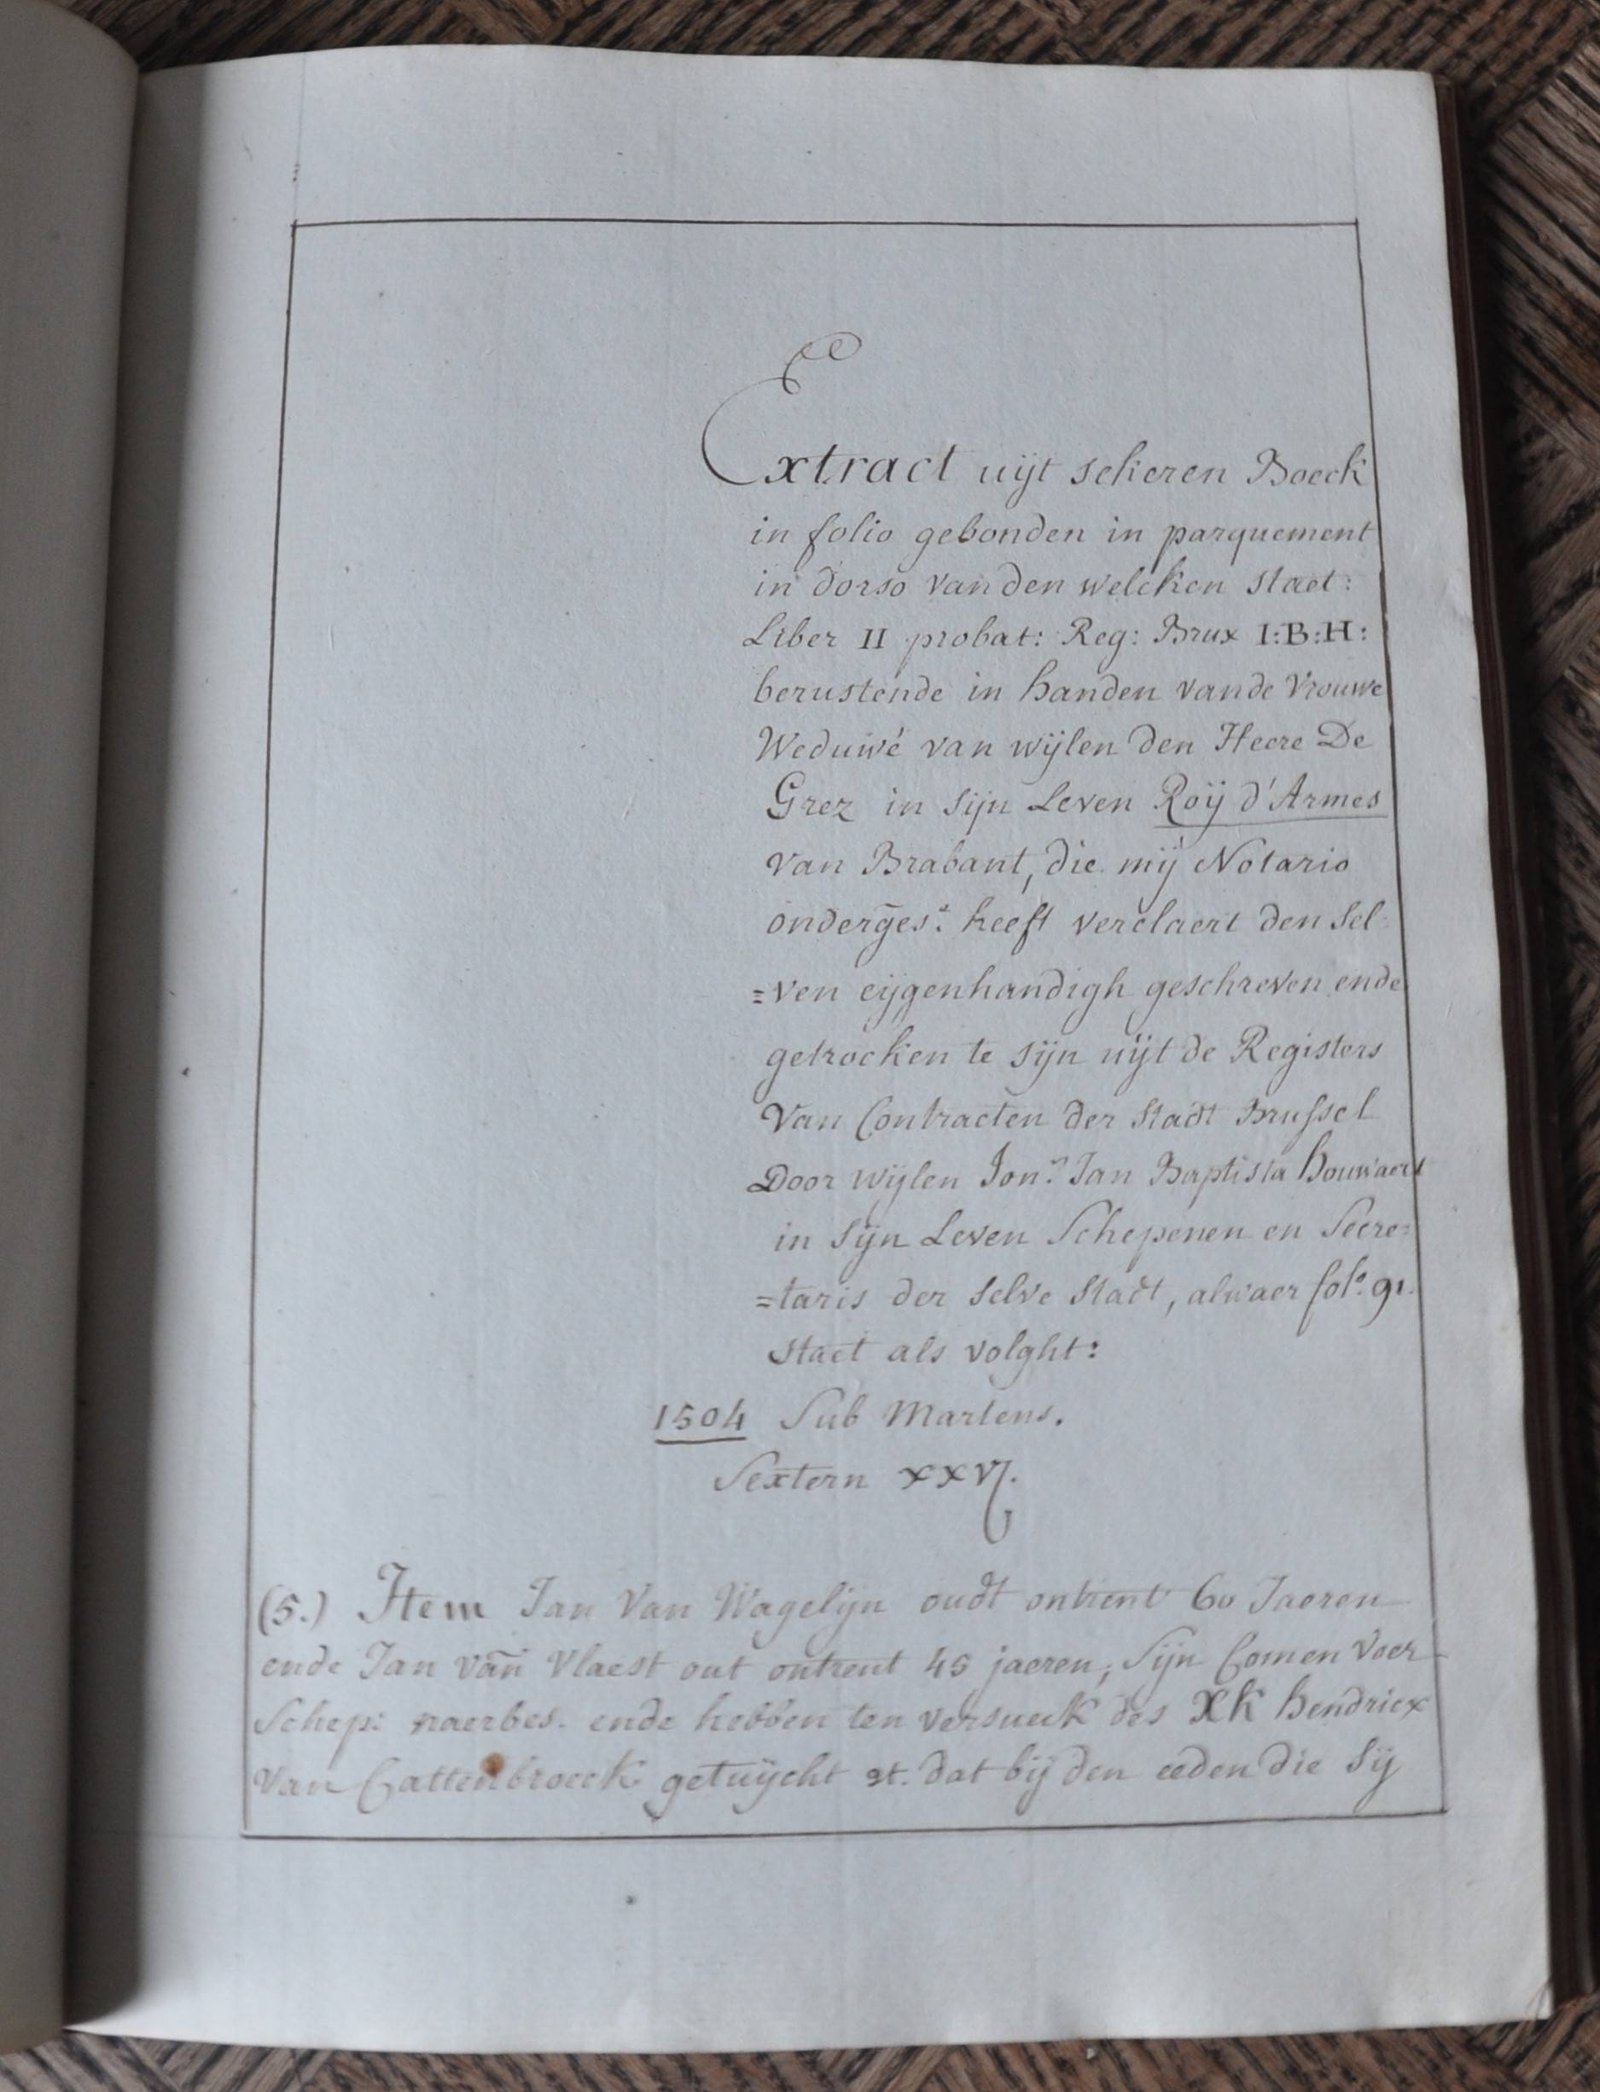 Extract uijt sekeren Boeck
in folio gebonden in parquement
in dorso van den welcken staet:
Liber II probat: Reg: Brux I:B:H:
berustende in handen vande Vrouwe
Weduwé van wijlen den Heere De
Grez in sijn Leven Roÿ d'Armes
van Brabant, die mij Notario
onderges.t heeft verclaert den sel=
=ven eijgenhandigh geschreven ende
getrocken te sijn uijt de Registers
Van Contracten der stadt Brussel
Door wijlen Jon.r Jan Baptista Houwaert
in sijn Leven Schepenen en Secre=
=taris der selve stadt, alwaer fol.o 91.
staet als volght:
1504 Sub Martens.
Sextern xxvj.
(5.) Item Jan Van Wagelijn oudt ontrent 60 Jaeren
ende Jan van Vlaest out ontrent 45 jaeren, sijn Comen voer
Schep: naerbes. ende hebben ten versueck des Hendricx
Van Cattenbroeck getuijcht et. dat bij den eeden die sij